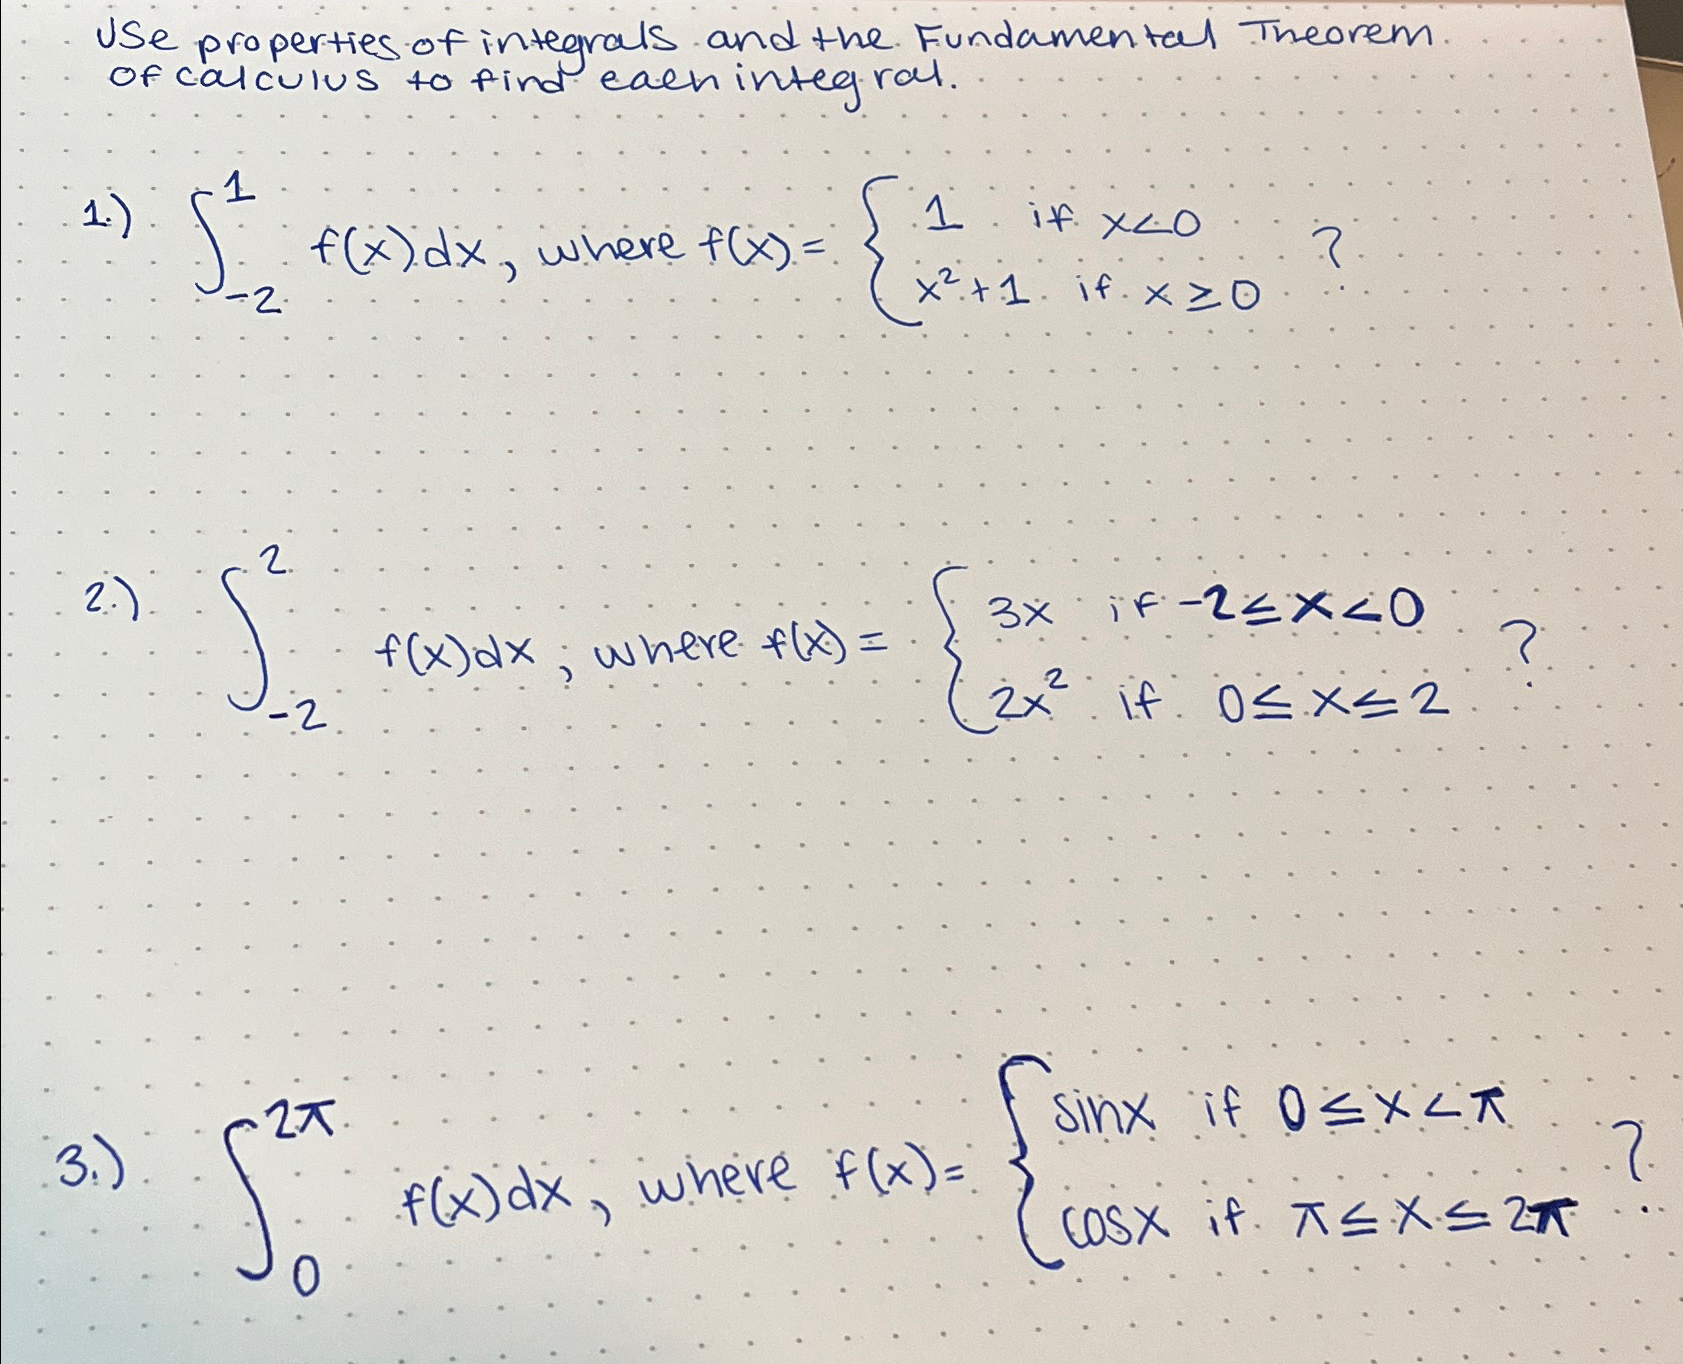 Use properties of integrals and the Fundamental Theorem
of calculus to find each integral.
1.) ∫_{-2}^{1} f(x)dx, where f(x) = { 1 if x<0
x²+1 if x≥0 ?
2.) ∫_{-2}^{2} f(x)dx, where f(x) = { 3x if -2≤x<0
2x² if 0≤x≤2 ?
3.) ∫_{0}^{2π} f(x)dx, where f(x) = { sinx if 0≤x<π
cosx if π≤x≤2π ?